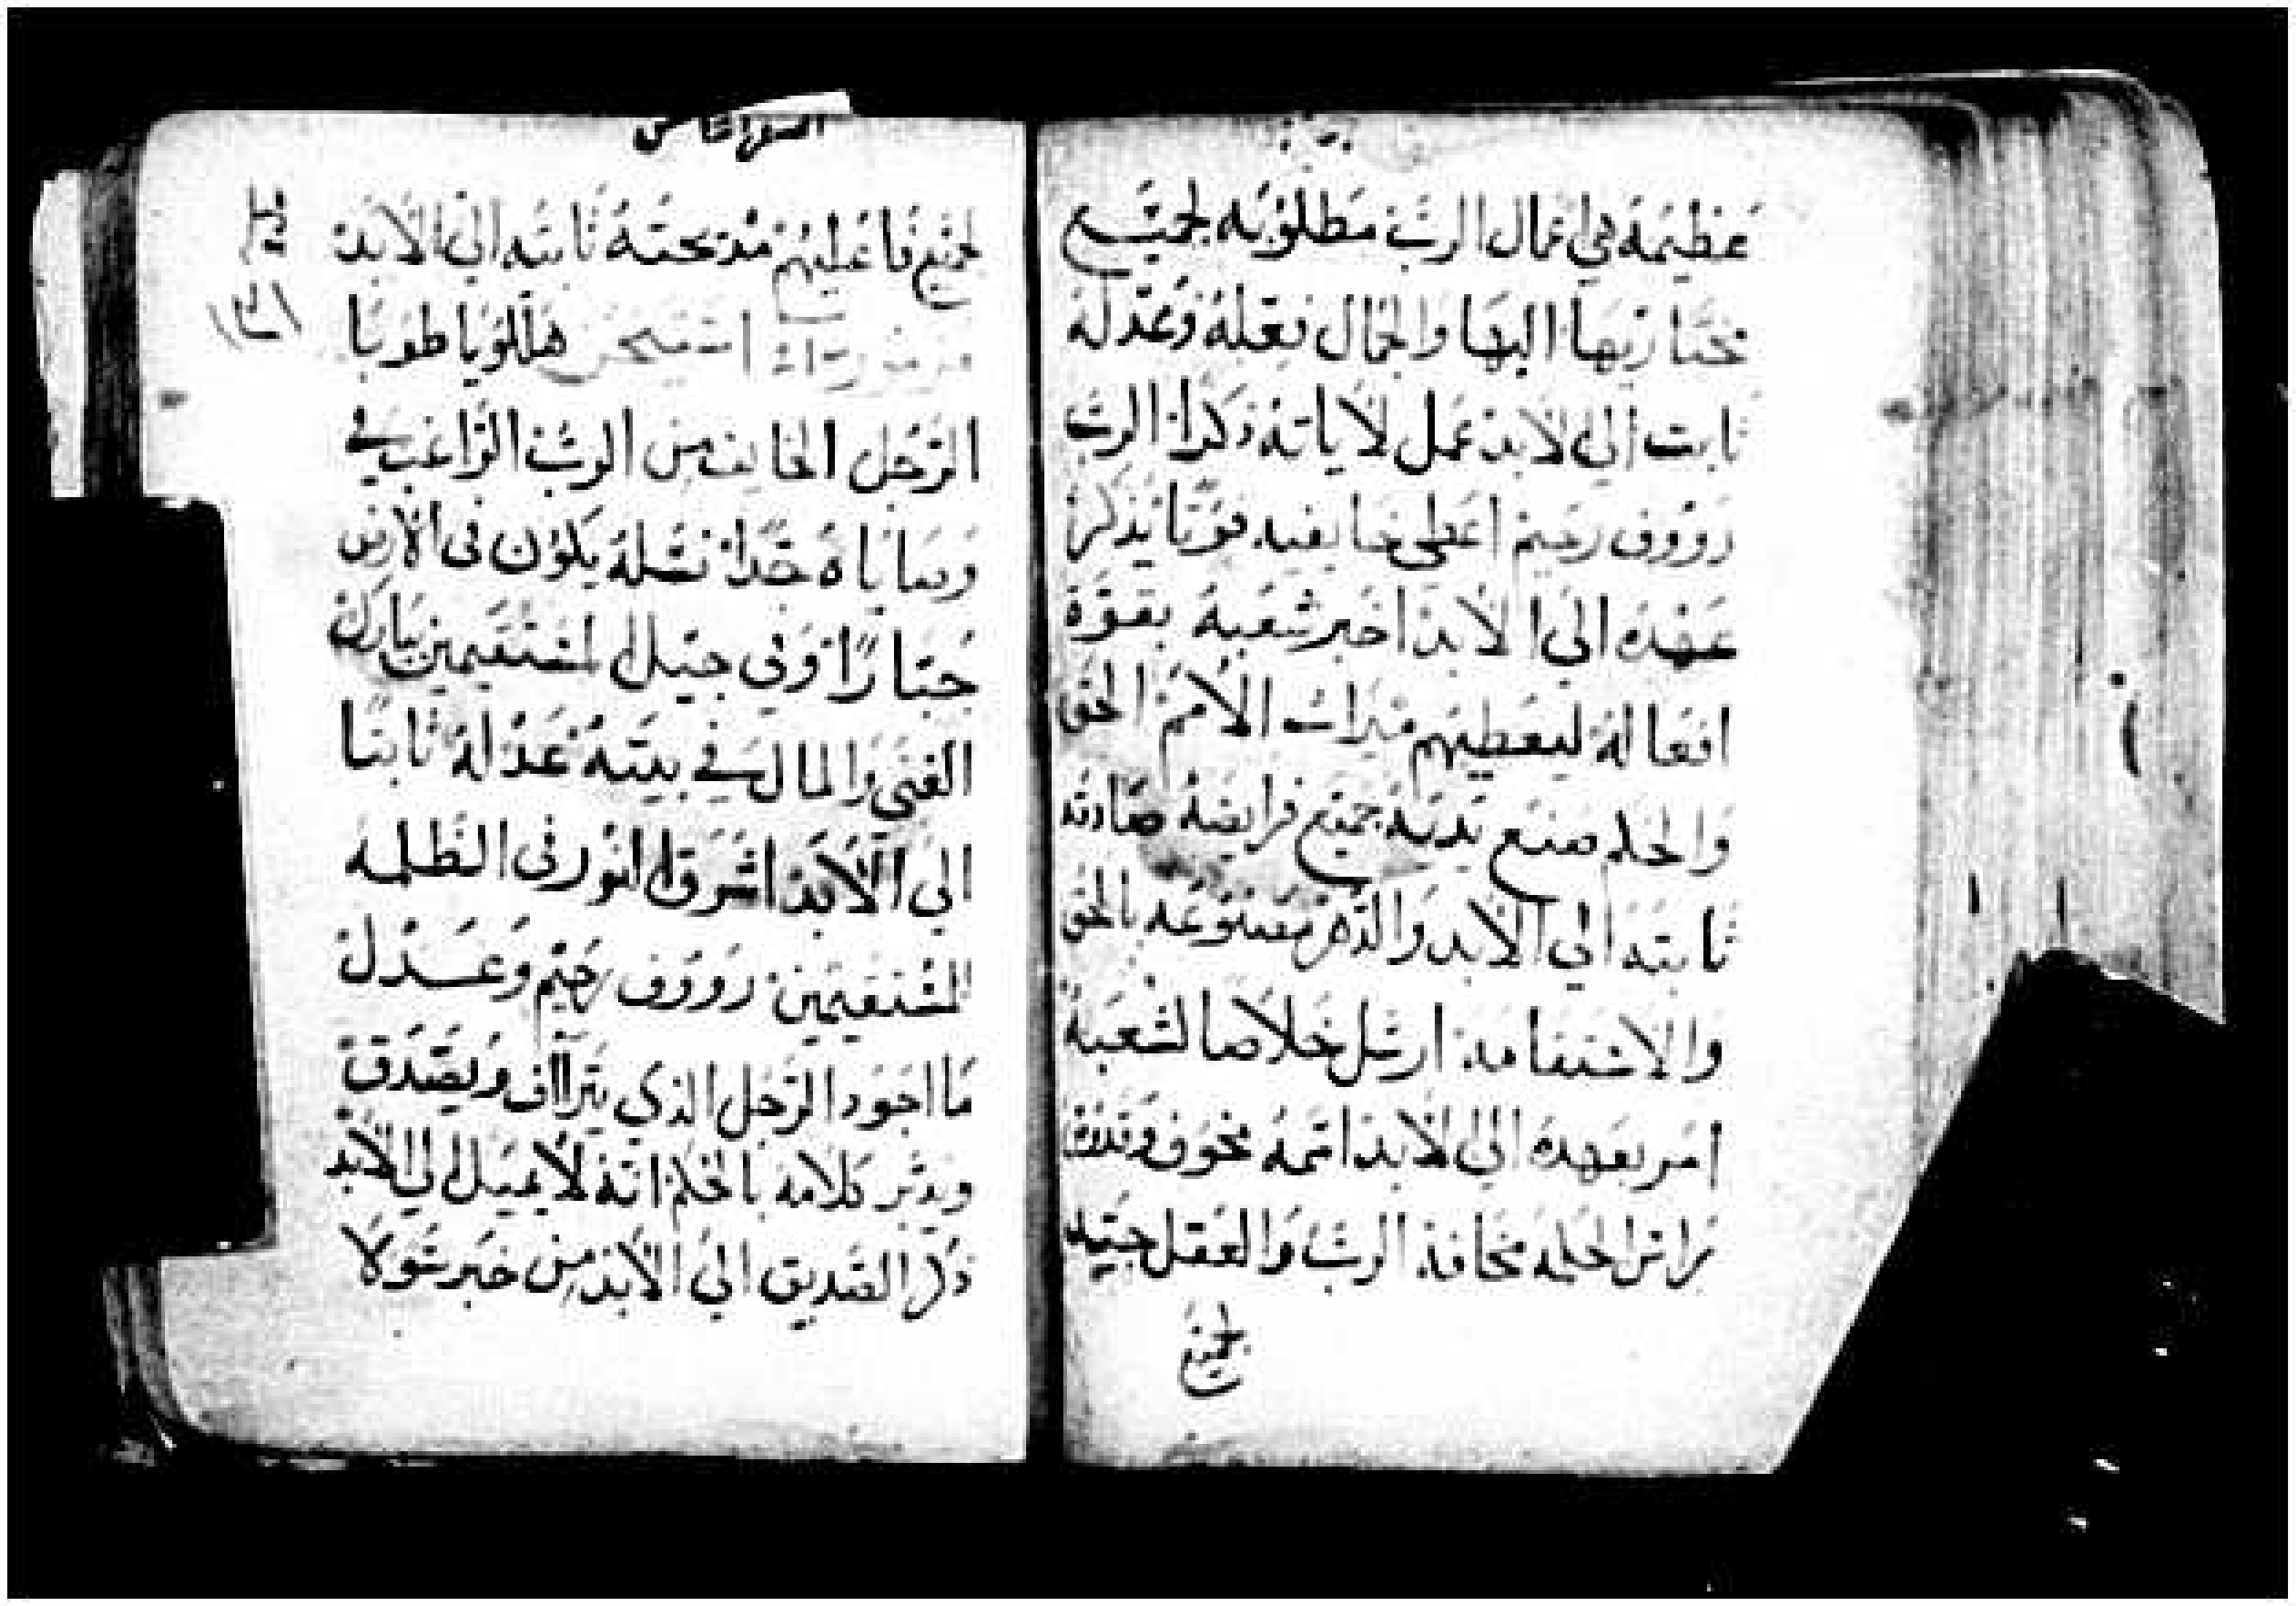 عظيمة هي اعمال الرب مطلوبه لجميع
مختاريها البها والجمال فعله وعدله
ثابت الى الابد عمل لاياته ذكرا الرب
رووف رحيم اعطى خايفيه قوتا يذكر
عهده الى الابد اخبر شعبه بقوة
افعاله ليعطيهم ميراث الامم الحق
والحكم صنع يديه جميع فرايضه صادقه
ثابته الى الابد والدهر مصنوعه بالحق
والاستقامه ارسل خلاصا لشعبه
امر بعهده الى الابد اسمه مخوف وقدوس
راس الحكمه مخافة الرب والعقل جيد
لجميع
السهر الخامس
لجميع فاعليهم مدحته ثابته الى الابد
هللويا طوبا
الرجل الخايف من الرب الراغب في
وصاياه جدا نسله يكون فى الارض
جبارا وفي جيل المستقيمين يبارك
الغنى والمال في بيته عدله ثابتا
الي الابد اشرق النور فى الظلمه
للمستقيمين رووف رحيم وعدل
ما اجود الرجل الذي يتراف ويصدق
ويدبر كلامه بالحكم انه لا يميل الي الابد
ذكر الصديق الي الابد من خبر سو لا